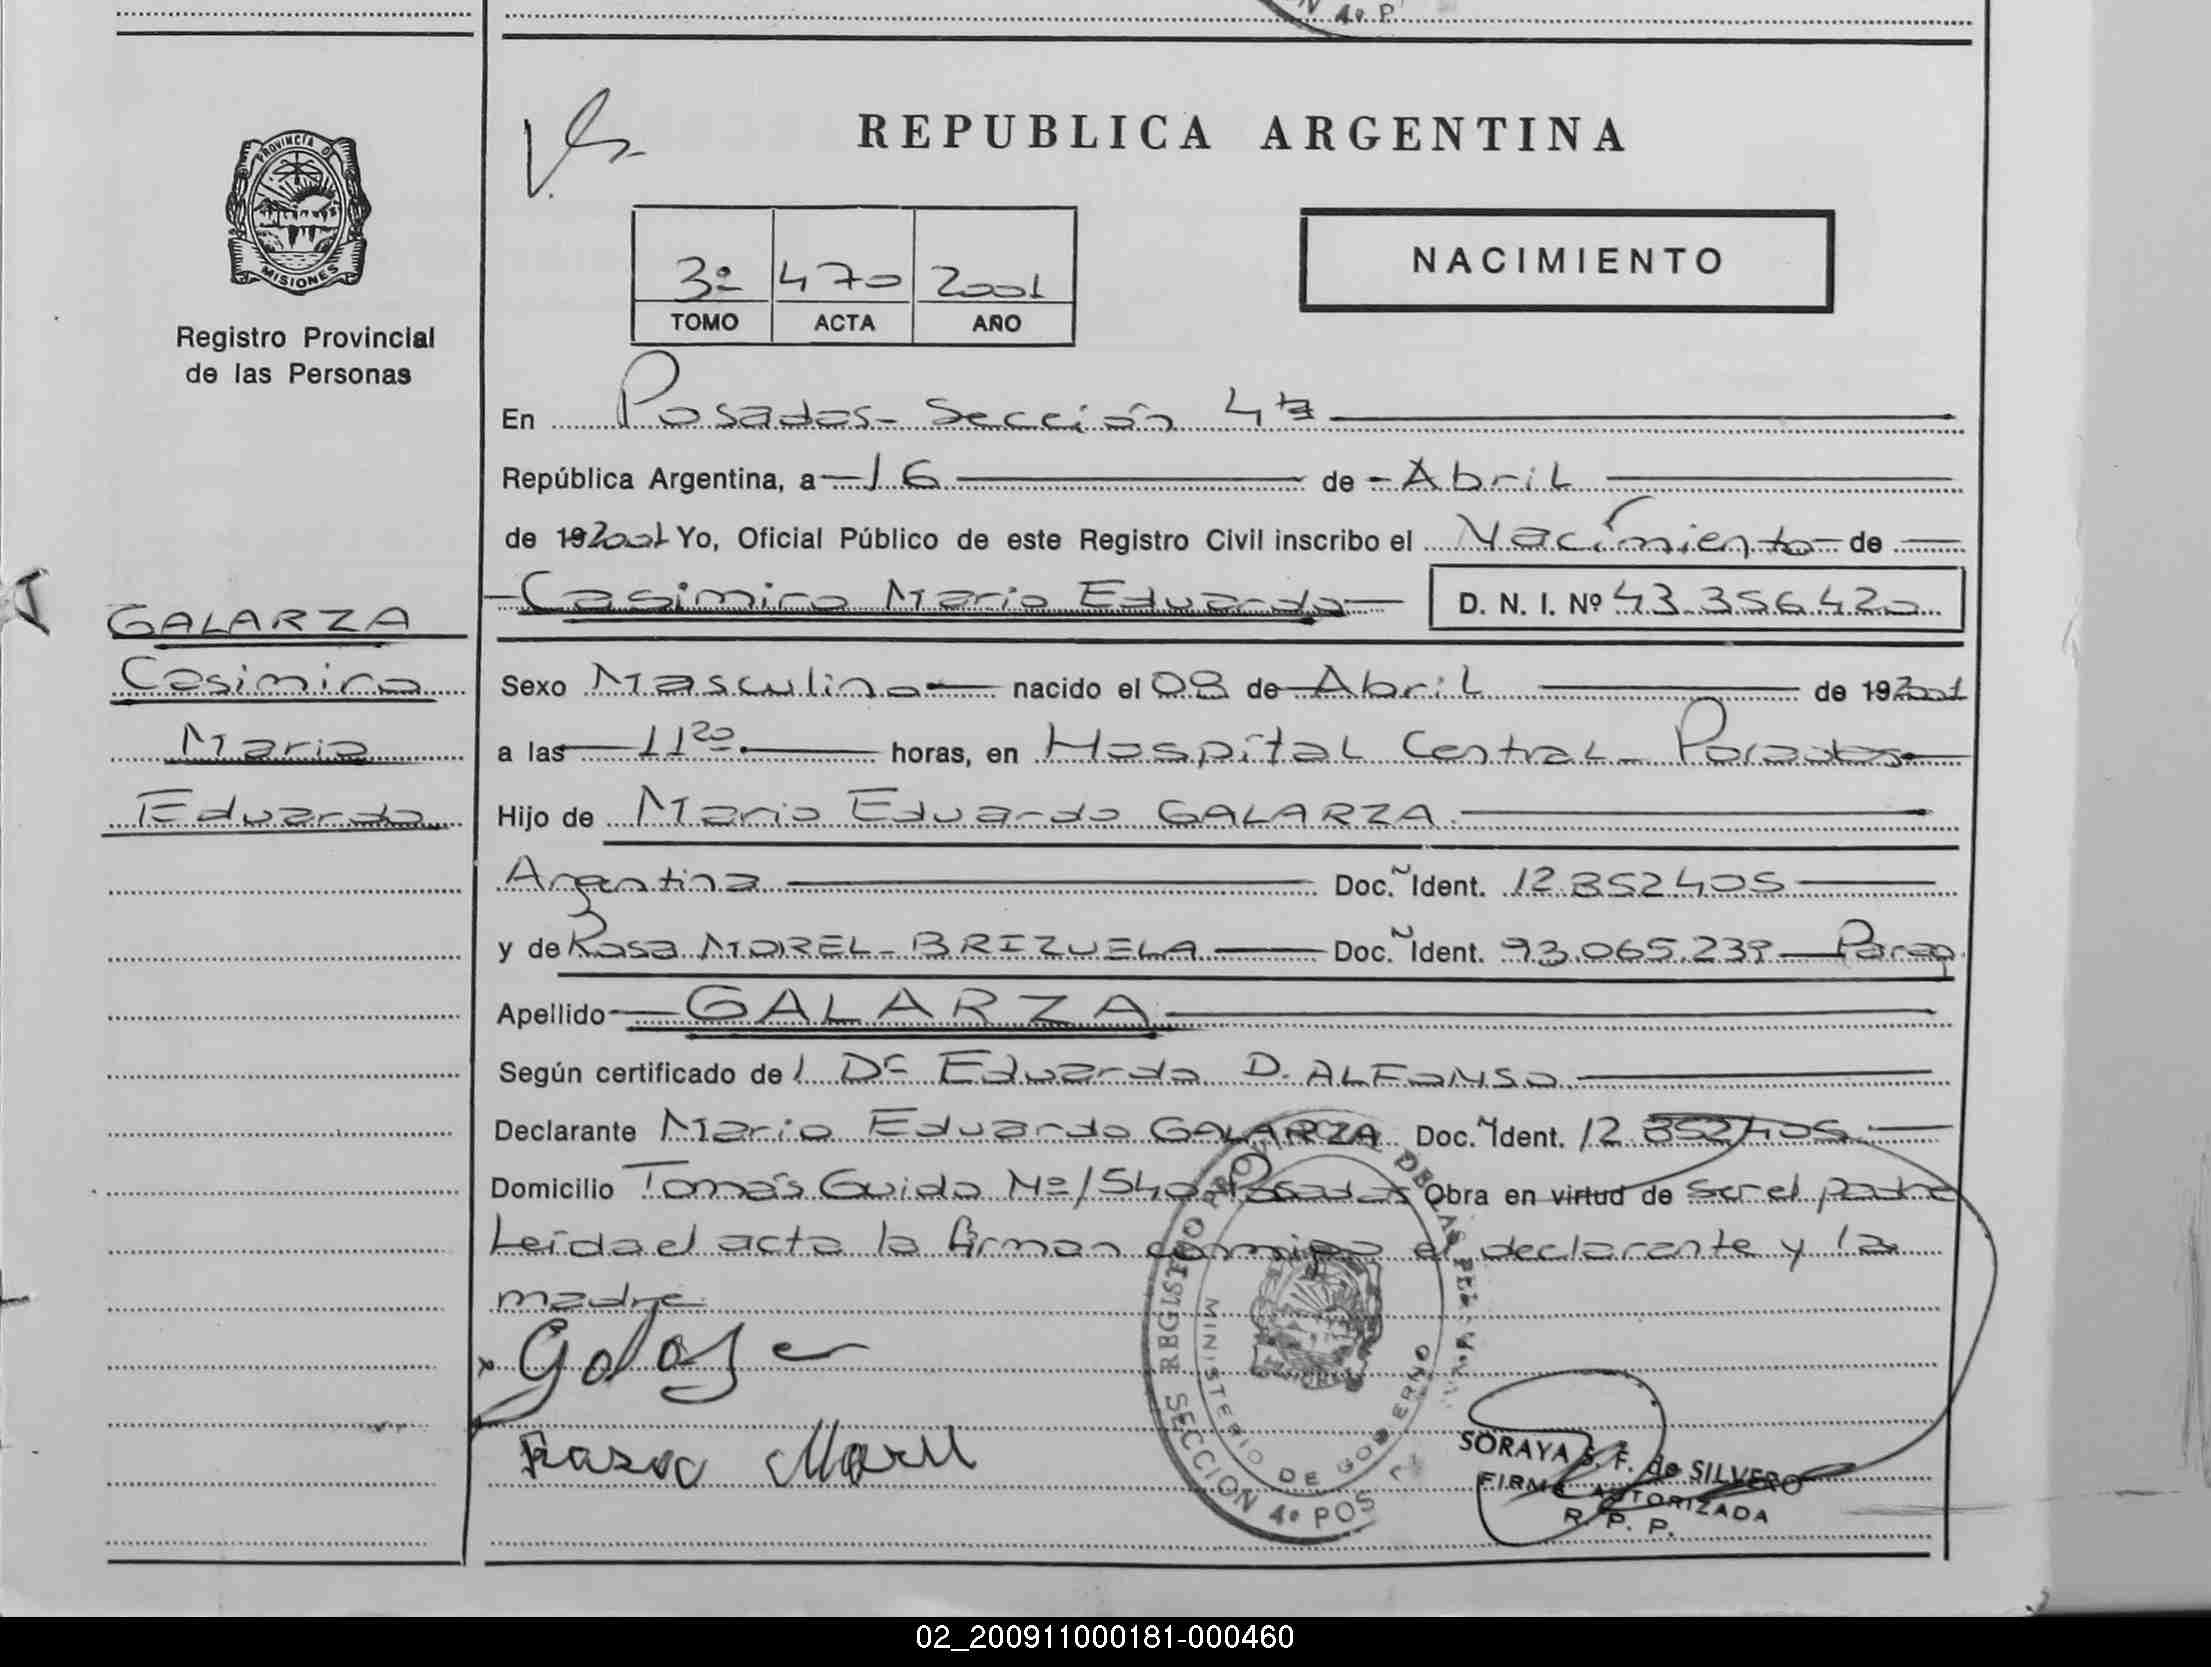 4º P
PROVINCIA DE
MISIONES
Registro Provincial
de las Personas
REPUBLICA ARGENTINA
3º 470 2001
TOMO ACTA AÑO
NACIMIENTO
En Posadas - Sección 4ta
República Argentina, a 16 de Abril
de 192001 Yo, Oficial Público de este Registro Civil inscribo el Nacimiento de
Casimiro Mario Eduardo D. N. I. Nº 43.356.420
GALARZA
Casimiro
Mario
Eduardo
Sexo Masculino nacido el 08 de Abril de 192001
a las 11 20 horas, en Hospital Central - Posadas
Hijo de Mario Eduardo GALARZA
Argentina Doc. Ident. 12.852405
y de Rosa MOREL - BRIZUELA Doc. Ident. 93.065.239 Parag.
Apellido GALARZA
Según certificado de l Dr Eduardo D. ALFONSO
Declarante Mario Eduardo GALARZA Doc. Ident. 12.852405
Domicilio Tomás Guido Nº 1540 Posadas Obra en virtud de ser el padre
Leída el acta la firman conmigo el declarante y la
madre
REGISTRO PROVINCIAL DE LAS PER
MINISTERIO DE GOBIERNO
SECCION 4º POS
SORAYA S. F. de SILVERO
FIRMA AUTORIZADA
R. P. P.
02_200911000181-000460